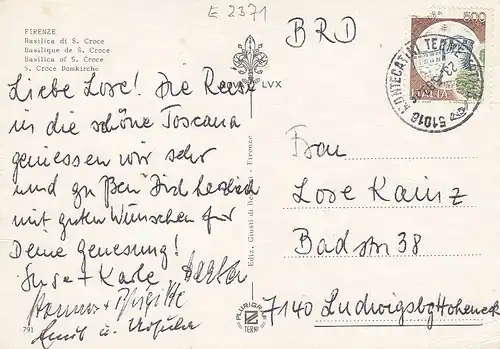 E 2371
FIRENZE
Basilica di S. Croce
Basilique de S. Croce
Basilica of S. Croce
S. Croce Domkirche
LVX
BRD
500
51016 MONTECATINI TERME
Liebe Lore! Die Reise
in die schöne Toscana
geniessen wir sehr
und grüßen Dich herzlich
mit guten Wünschen für
Deine Genesung!
Karle
Hannes + Brigitte
Ernst u. Ursula
791
Ediz. Giusti di Firenze
PLURIGRAF
TERNI
Frau
Lore Kainz
Badstr 38
7140 Ludwigsbg Hoheneck